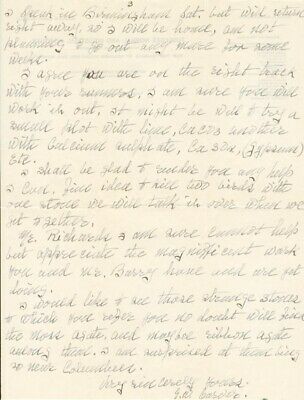 3
I speak in Birmingham Sat. but will return
right away, so I will be home, and not
planning to go out any more for some
weeks.
I agree you are on the right track
with your runners, I am sure you will
work it out, it might be well to try a
small plot with lime, CaCO3 another
with Calcium Sulphate, CaSO4, (gypsum)
Etc.
I shall be glad to render you any help
I can, fine idea to kill two birds with
one stone we will talk it over when we
get together.
Mr. Richards I am sure cannot help
but appreciate the magnificent work
you and Mr. Barry have and are yet
doing.
I would like to see those strange stones
to which you refer you no doubt will find
the moss agate, and maybe ribbon agate
among them. I am surprised at them being
so near Columbus.
Very sincerely yours.